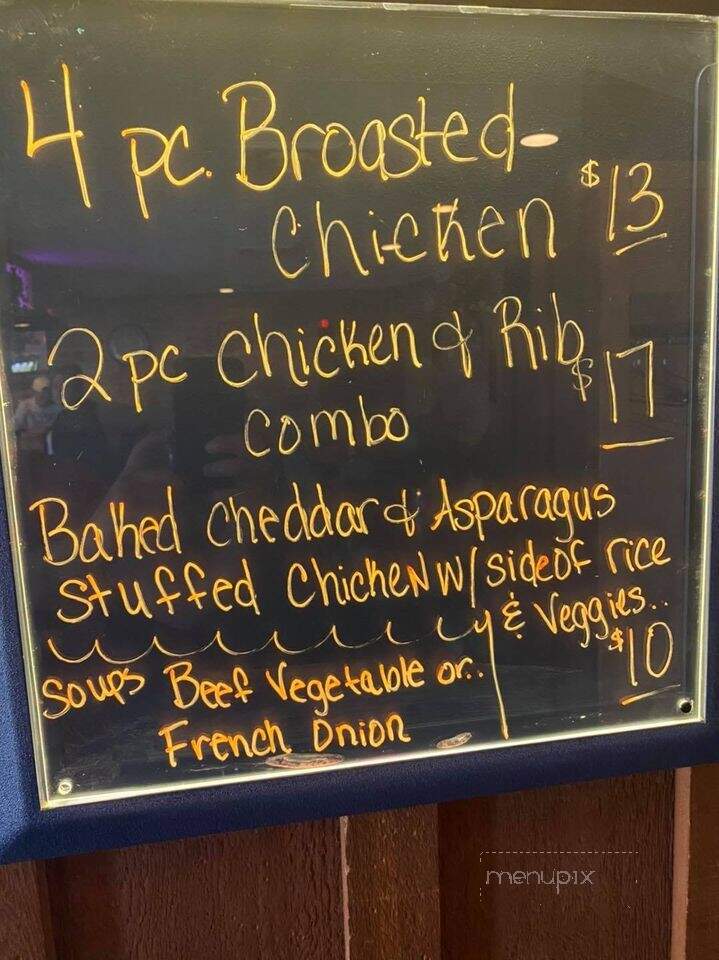 4 pc. Broasted
Chicken $13
2 pc Chicken & Rib
Combo $17
Baked Cheddar & Asparagus
Stuffed Chicken w/ side of rice
& Veggies.. $10
Soups Beef Vegetable or..
French Onion
menupix